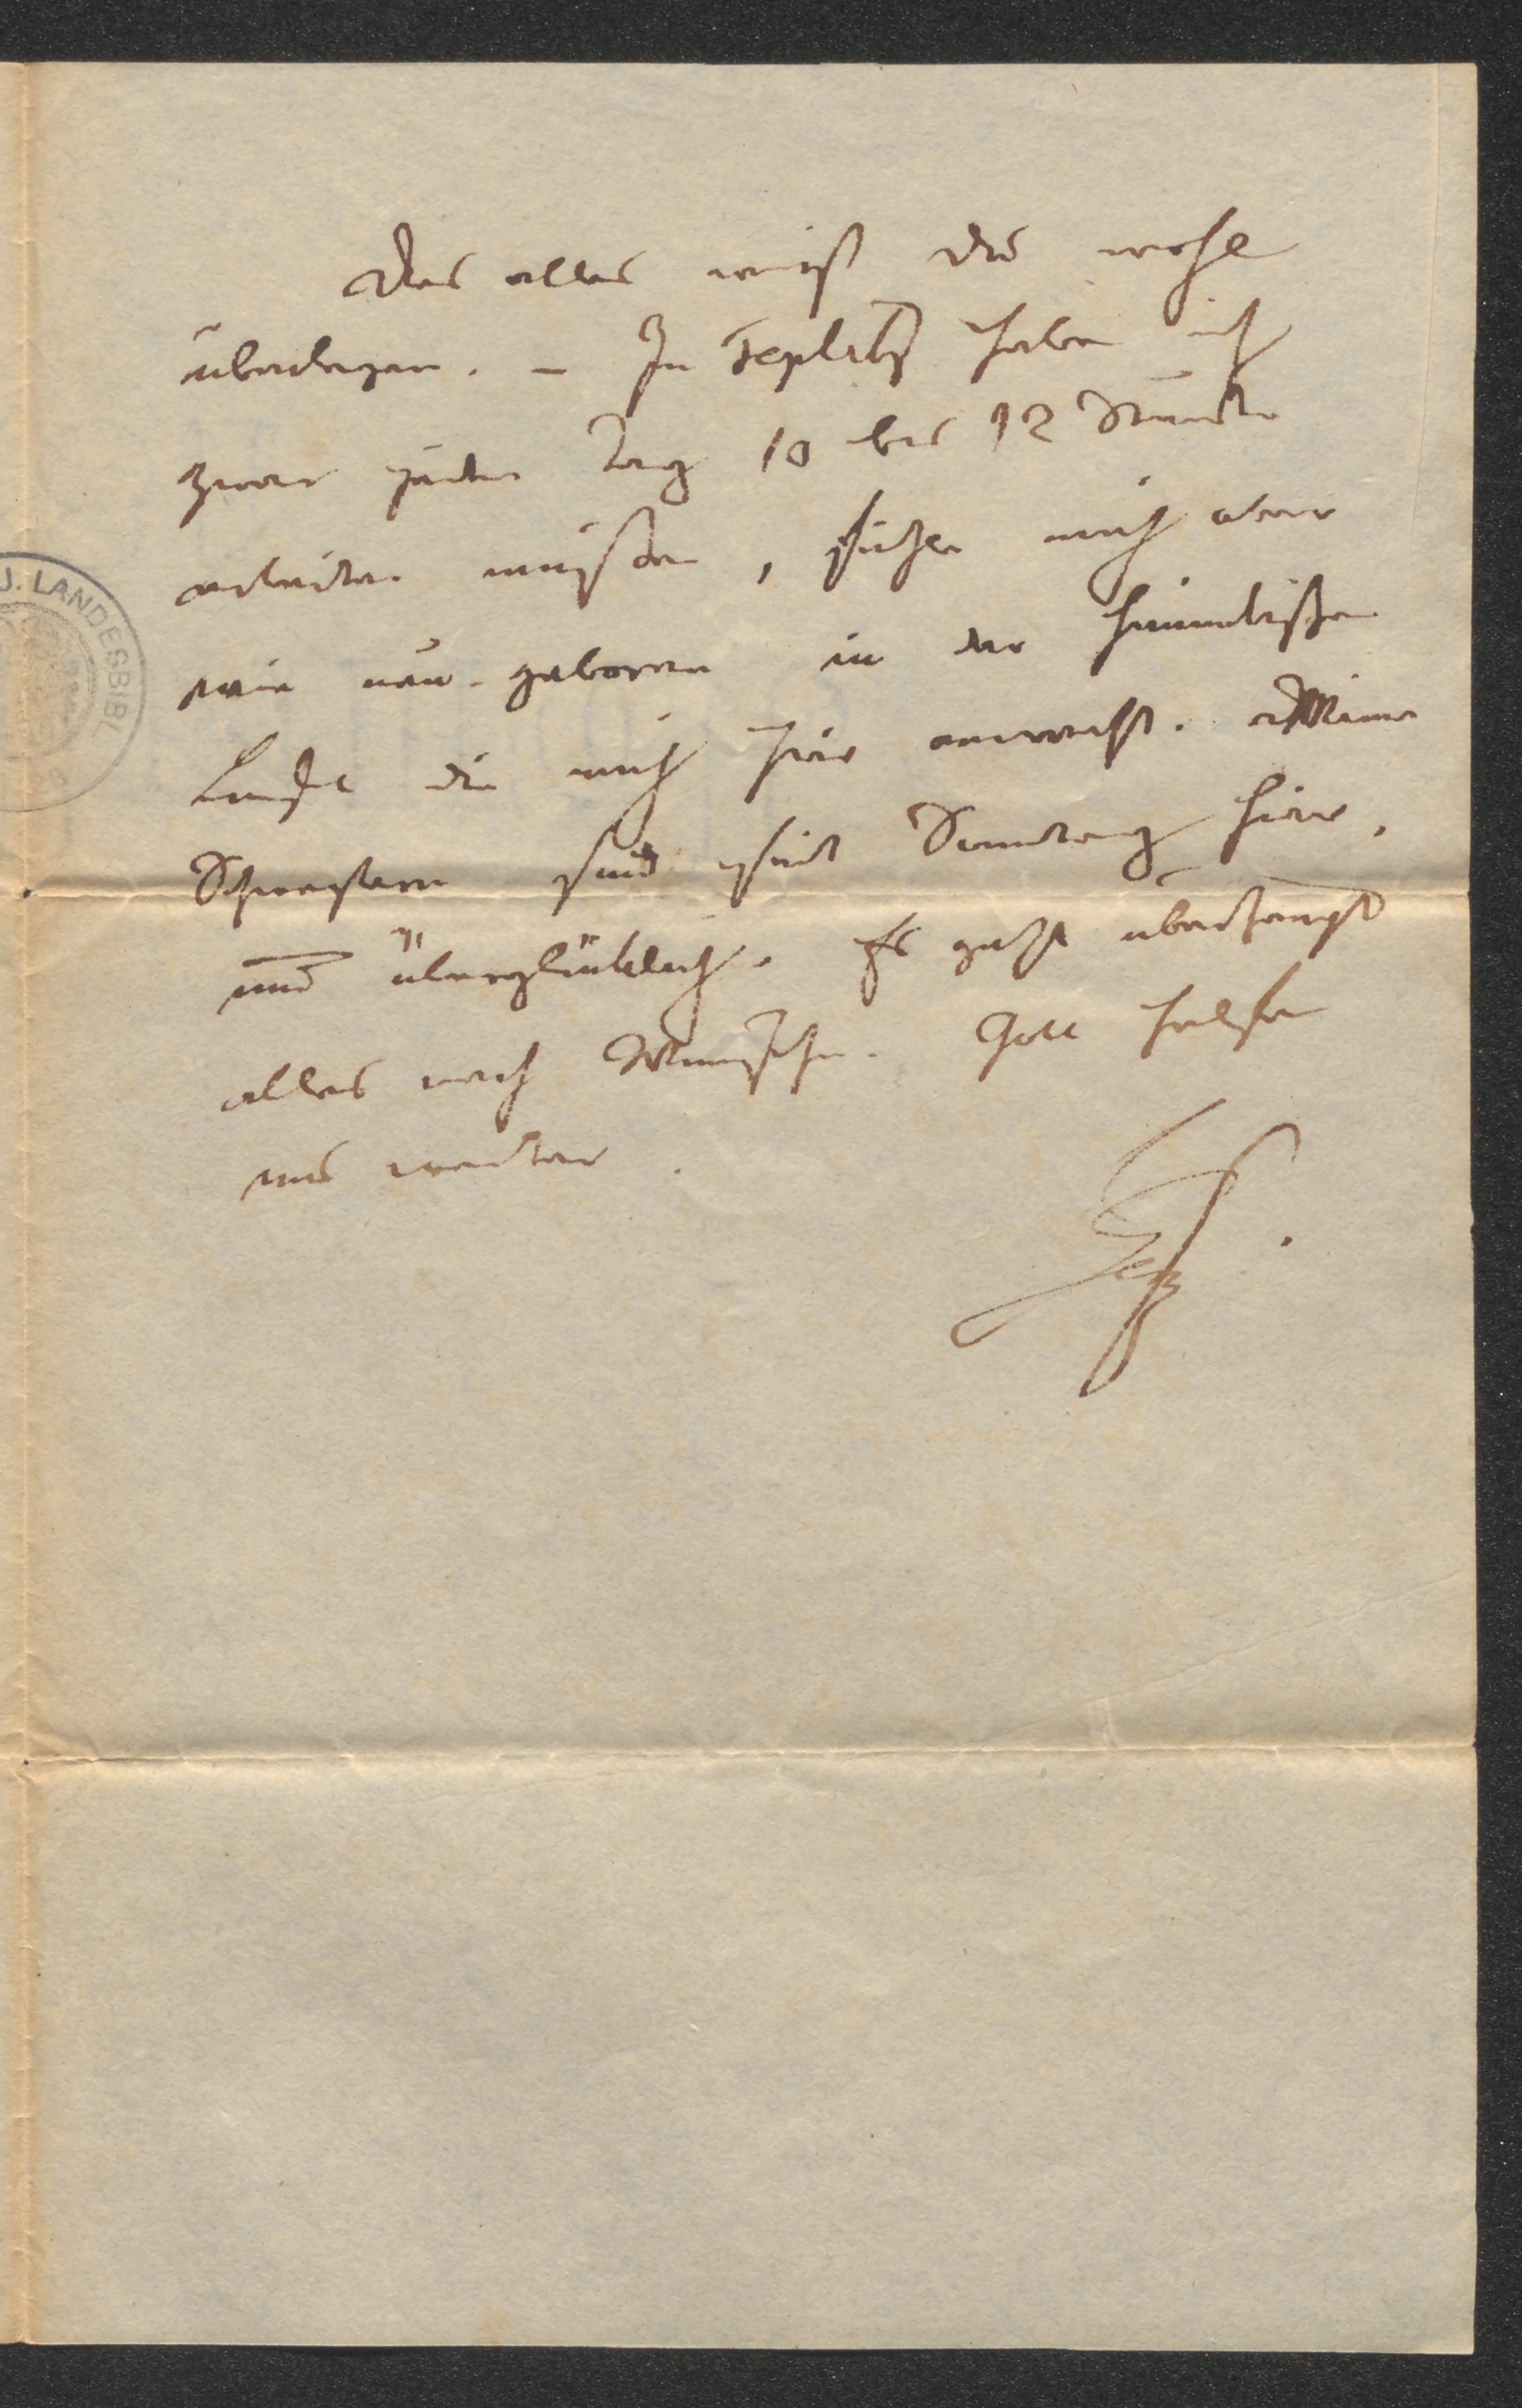 Das alles mußt du wohl
überlegen. – In Teplitz habe ich
zwar jeden Tag 10 bis 12 Stunden
arbeiten müßen, fühle mich aber
wie neu-geboren in der himmlischen
Luft die mich hier anweht. Meine
Schwestern sind seit Sonntag hier,
und überglücklich. Es geht überhaupt
alles nach Wunsche. Gott helfe
uns weiter.
J. LANDESBIBL